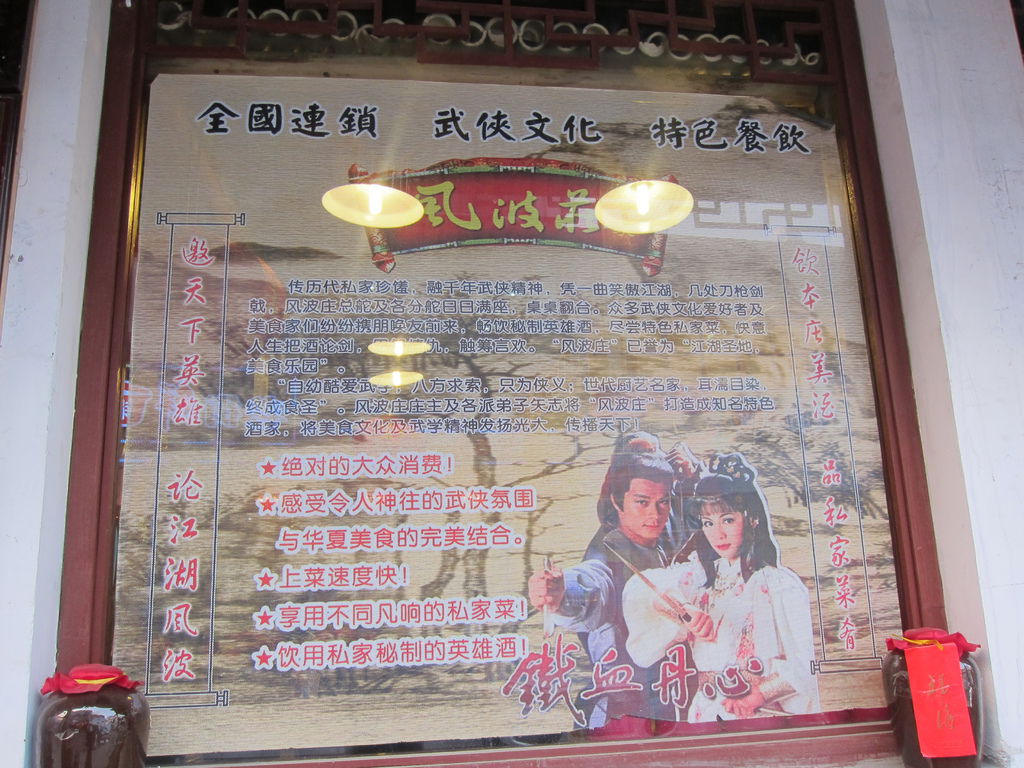 全國連鎖 武侠文化 特色餐飲
風波莊
邀天下英雄 论江湖风波
传历代私家珍馐，融千年武侠精神，凭一曲笑傲江湖，几处刀枪剑
戟，风波庄总舵及各分舵日日满座，桌桌翻台。众多武侠文化爱好者及
美食家们纷纷携朋唤友前来，畅饮秘制英雄酒，尽尝特色私家菜，快意
人生把酒论剑，仇，觥筹言欢。“风波庄”已誉为“江湖圣地，
美食乐园”。
“自幼酷爱武学，八方求索，只为侠义；世代厨艺名家，耳濡目染，
终成食圣”。风波庄庄主及各派弟子矢志将“风波庄”打造成知名特色
酒家，将美食文化及武学精神发扬光大，传播天下！
★绝对的大众消费！
★感受令人神往的武侠氛围
与华夏美食的完美结合。
★上菜速度快！
★享用不同凡响的私家菜！
★饮用私家秘制的英雄酒！
鐵血丹心
饮本店美酒 品私家菜肴